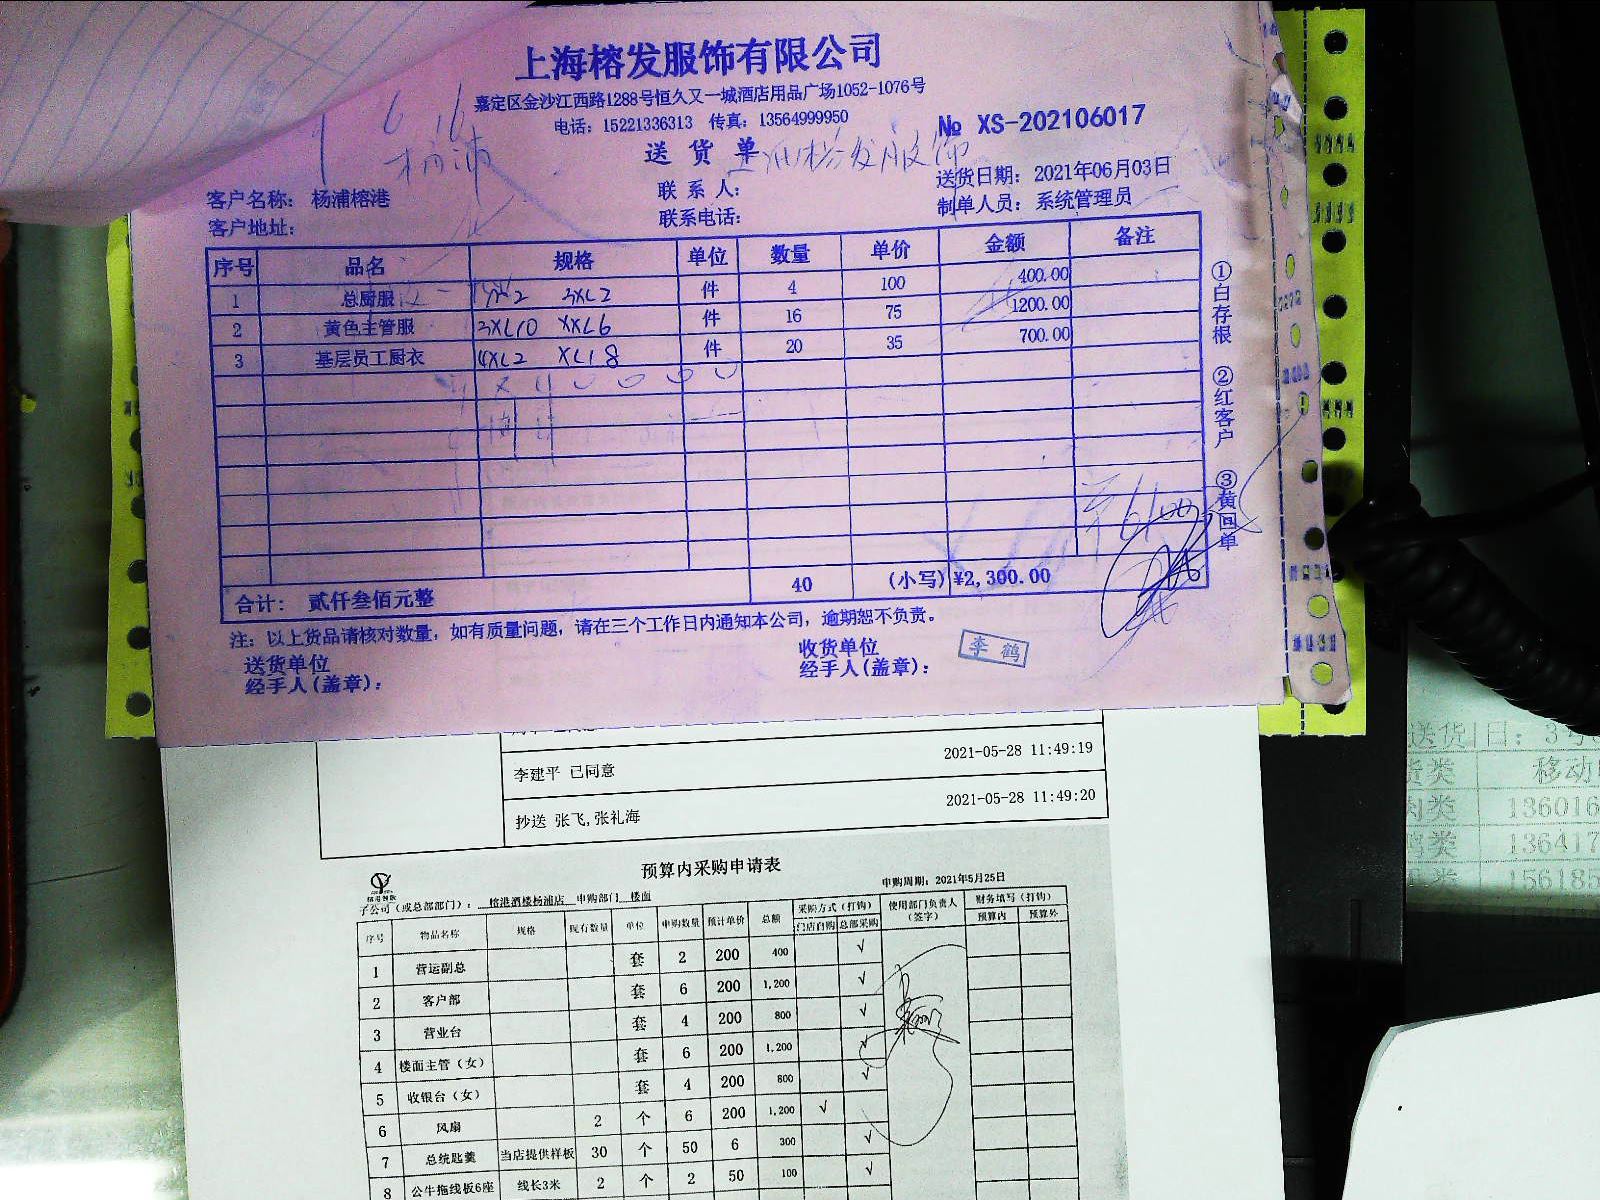 上海榕发服饰有限公司
嘉定区金沙江西路1288号恒久又一城酒店用品广场1052-1076号
电话：15221336313 传真：13564999950
№ XS-202106017
送 货 单
客户名称：杨浦榕港
联 系 人：
送货日期：2021年06月03日
客户地址：
联系电话：
制单人员：系统管理员
序号 品名 规格 单位 数量 单价 金额 备注
1 总厨服 3XL2 件 4 100 400.00
2 黄色主管服 3XL10 XXL6 件 16 75 1200.00
3 基层员工厨衣 4XL2 XL18 件 20 35 700.00
合计： 贰仟叁佰元整 40 (小写) ¥2,300.00
注：以上货品请核对数量，如有质量问题，请在三个工作日内通知本公司，逾期恕不负责。
送货单位
经手人(盖章)：
收货单位
经手人(盖章)：
李鹤
①白存根 ②红客户 ③黄回单
2021-05-28 11:49:19
李建平 已同意
2021-05-28 11:49:20
抄送 张飞,张礼海
预算内采购申请表
申购周期：2021年5月25日
子公司（或总部部门）：榕港酒楼杨浦店 申购部门 楼面
序号 物品名称 规格 现有数量 单位 申购数量 预计单价 总额 采购方式（打钩） 使用部门负责人（签字） 财务填写（打钩）
门店自购 总部采购 预算内 预算外
1 营运副总 套 2 200 400 √
2 客户部 套 6 200 1,200 √
3 营业台 套 4 200 800 √
4 楼面主管（女） 套 6 200 1,200 √
5 收银台（女） 套 4 200 800 √
6 风扇 2 个 6 200 1,200 √
7 总统匙羹 当店提供样板 30 个 50 6 300 √
8 公牛拖线板6座 线长3米 2 个 2 50 100 √
送货日：3号
移动
136016
136417
156185